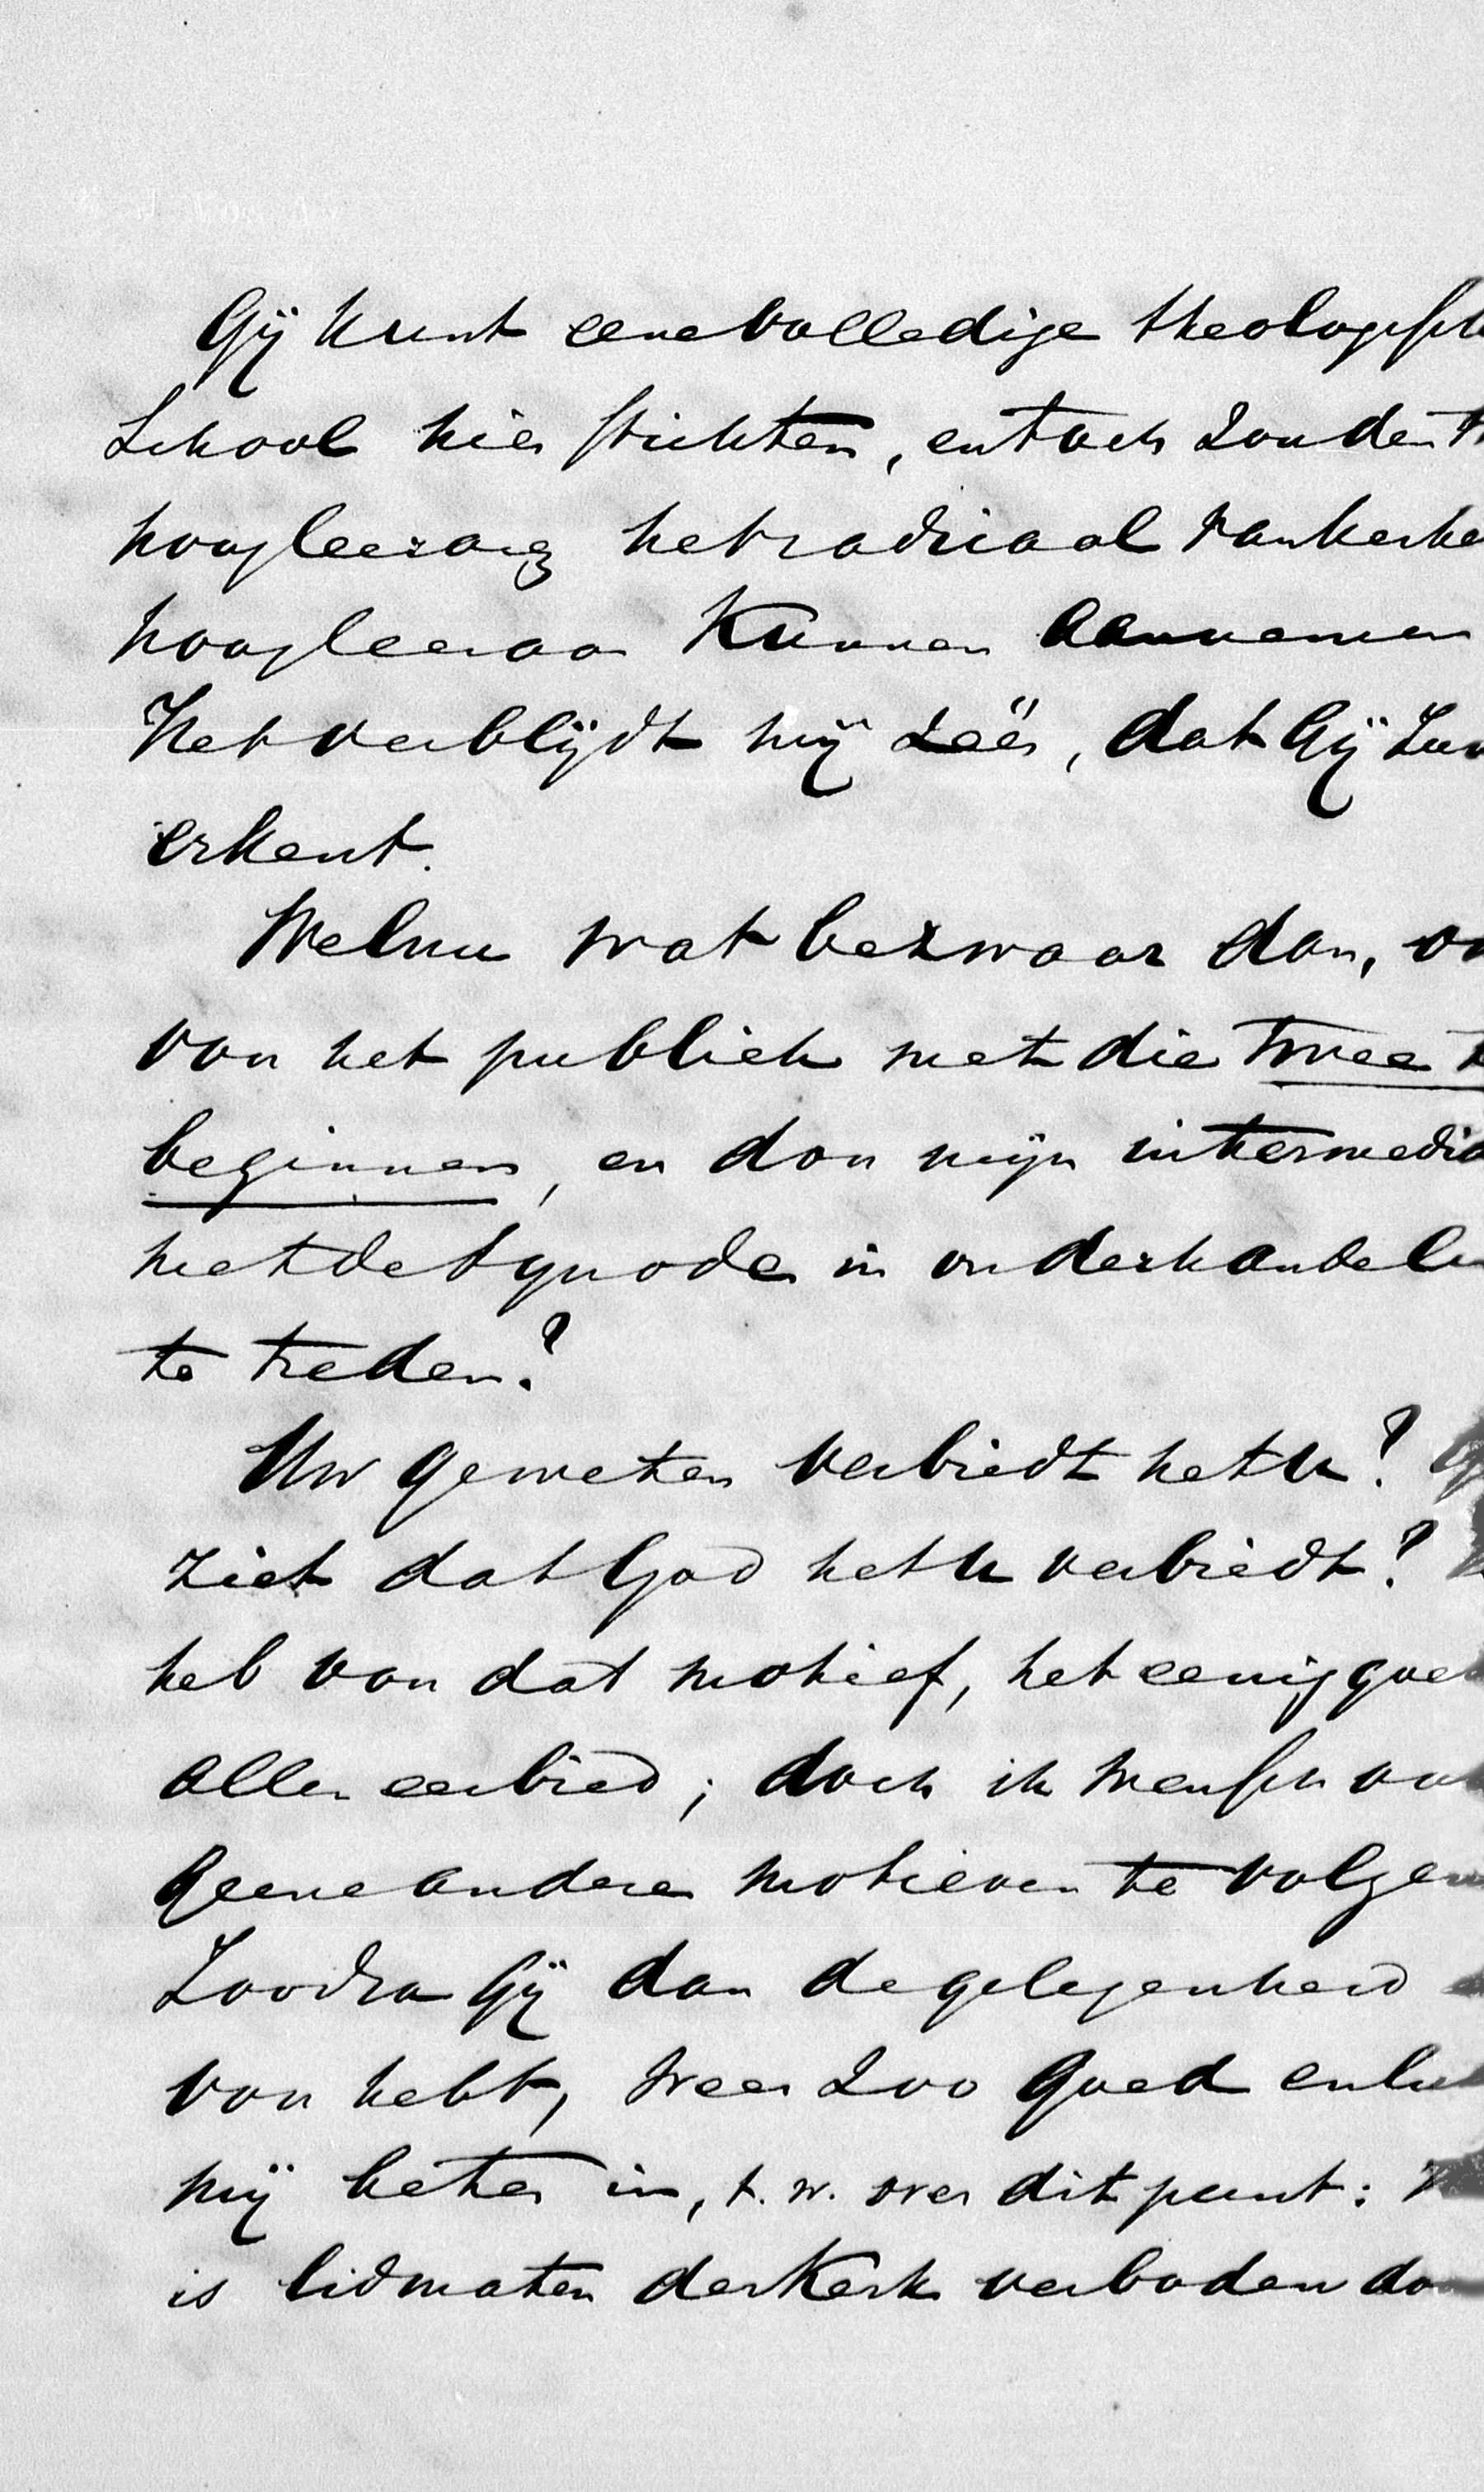 Gij kunt eene volledige theologisch
School hier stichten, en toch zonder
hoogleeraar het radicaal van kerke
hoogleeraar kunnen aannemen
Het verblijdt mij zéér, dat Gij
erkent.
Welnu wat bezwaar dan,
van het publiek met die twee
beginnen, en dan mijn intermedia
met de Synode in onderhandelin
te treden?
Uw geweten verbiedt het U?
ziet dat God het U verbiedt?
heb van dat motief, het eenig goe
allen eerbied; doch ik wensch
geene andere motieven te volgen
Zoodra Gij dan de gelegenheid
van hebt, wees zoo goed en
mij beter in, t. w. over dit punt:
is lidmaten der Kerk verboden